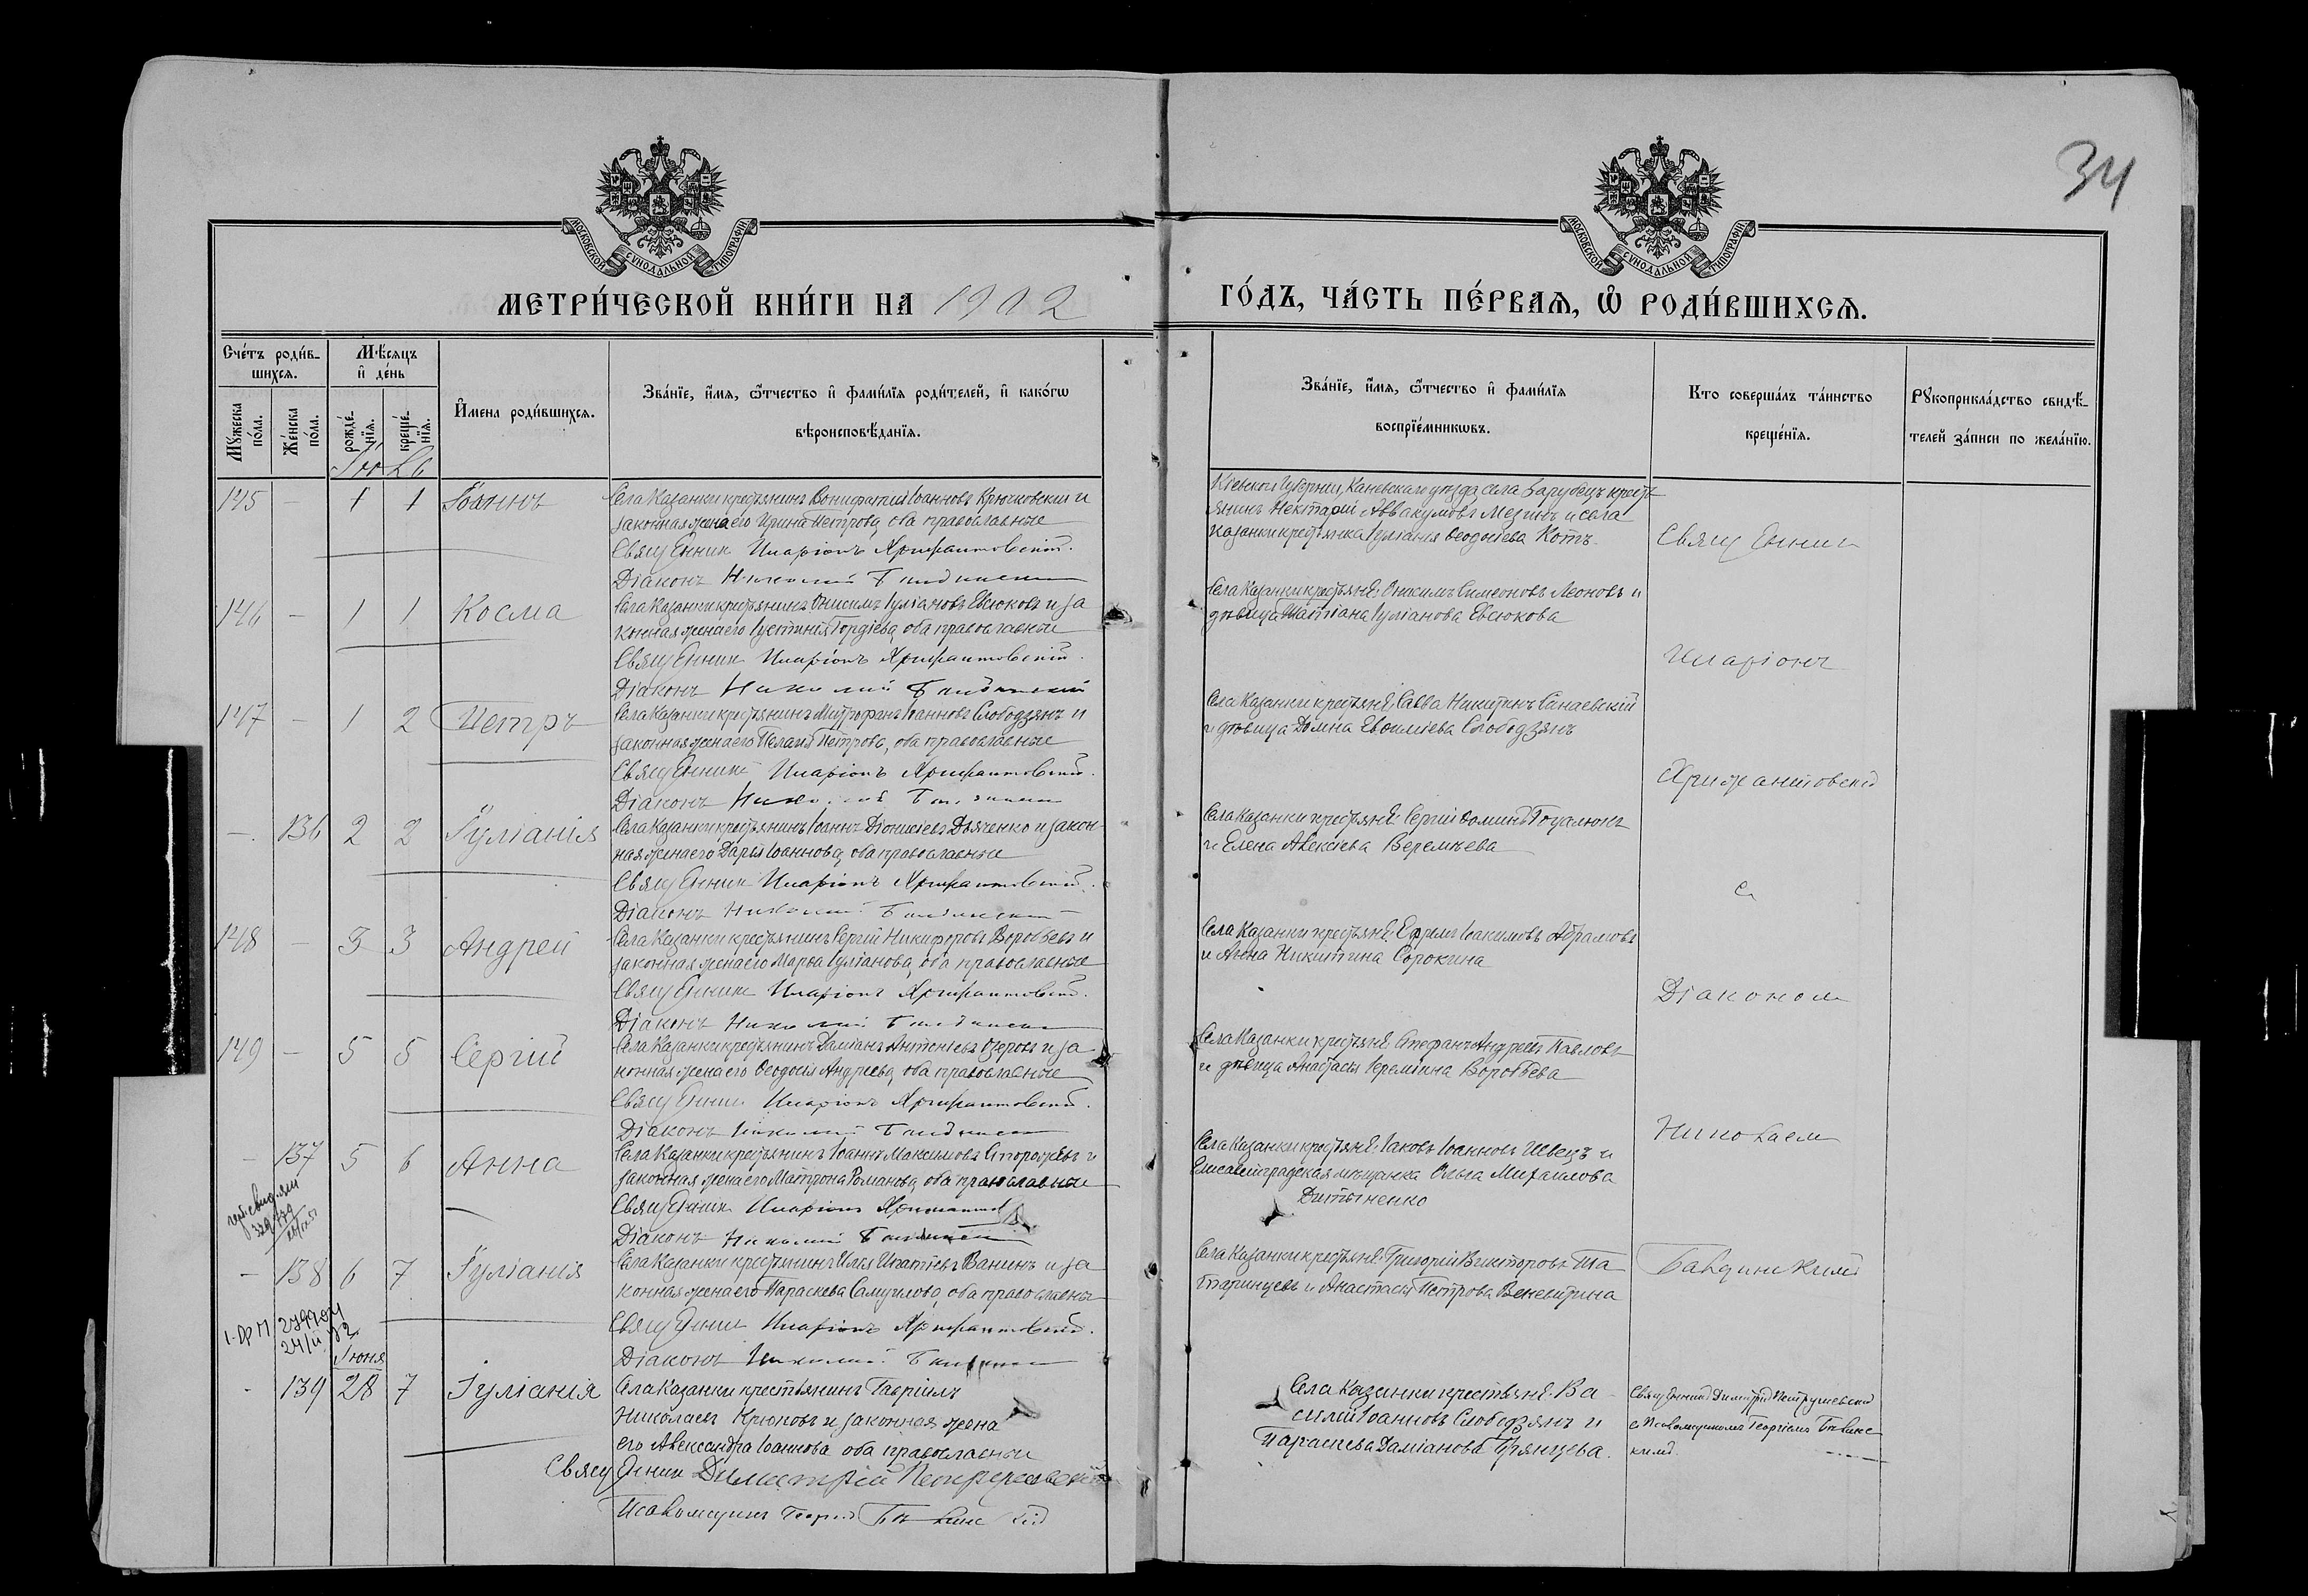 34
МОСКОВСКОЙ СѴНОДАЛЬНОЙ ТИПОГРАФІИ
МОСКОВСКОЙ СѴНОДАЛЬНОЙ ТИПОГРАФІИ
МЕТРИ́ЧЕСКОЙ КНИ́ГИ НА 1902
ГО́ДЪ, ЧА́СТЬ ПЕ́РВАѦ, Ѿ РОДИ́ВШИХСѦ.
Сче́тъ роди́в-
шихсѧ.
Мꙋжеска по́ла.
Же́нска по́ла.
Мѣ́сяцъ
и҆ де́нь
рожде́-
нїѧ.
креще́-
нїѧ.
И҆мена роди́вшихсѧ.
Зва́нїе, и҆́мѧ, ѻ҆́тчество и҆ фами́лїѧ роди́телей, и҆ како́гѡ
вѣроисповѣ́данїѧ.
Зва́нїе, и҆́мѧ, ѻ҆́тчество и҆ фами́лїѧ
воспрїе́мникѡвъ.
Кто соверша́лъ та́инство
креще́нїѧ.
Рꙋкоприкла́дство свидѣ́-
телей за́писи по жела́нїю.
145 - 1 1 Іоаннъ
Села Казанки крестьянинъ Вонифатій Іоанновъ Крючковскій и
законная жена его Ирина Петрова, оба православные
Священникъ Иларіонъ Хрисанфовскій.
Діаконъ Николай Балдинскій
Кіевской губерніи, Каневскаго уѣзда, села Зарубецъ крест
янинъ Нектарій Аввакумовъ Мезинъ и села
Казанки крестьянка Іуліанія Ѳеодосіева Котъ
Священник
146 - 1 1 Косма
Села Казанки крестьянинъ Онисимъ Іуліановъ Евсюковъ и за
конная жена его Іустинія Гордіева, оба православные
Священник Иларіонъ Хрисанфовскій.
Діаконъ Николай Балдинскій
Села Казанки крестьяне: Онисимъ Симеоновъ Леоновъ и
дѣвица Татіана Іуліанова Евсюкова
Иларіонъ
147 - 1 2 Петръ
Села Казанки крестьянинъ Митрофанъ Іоанновъ Слободзянъ и
законная жена его Пелагія Петрова, оба православные
Священникъ Иларіонъ Хрисанфовскій.
Діаконъ Николай Балдинскій
Села Казанки крестьяне: Савва Никитинъ Санаевскій
и дѣвица Домна Евфиміева Слободзянъ
Хрисанфовскій
- 136 2 2 Іуліанія
Села Казанки крестьянинъ Іоаннъ Діонисіевъ Дьяченко и закон
ная жена его Дарія Іоаннова, оба православные
Священник Иларіонъ Хрисанфовскій.
Діаконъ Николай Балдинскій
Села Казанки крестьяне: Сергій Ѳоминъ
и Елена Алексіева Веремѣева
съ
148 - 3 3 Андрей
Села Казанки крестьянинъ Сергій Никифоровъ Воробьевъ и
законная жена его Марѳа Іуліанова, оба православные
Священник Иларіонъ Хрисанфовскій.
Діаконъ Николай Балдинскій
Села Казанки крестьяне: Ефремъ Іоакимовъ Абрамовъ
и Анна Никитина Сорокина
Діакономъ
149 - 5 5 Сергій
Села Казанки крестьянинъ Даміанъ Антоніевъ Озеровъ и за
конная жена его Ѳеодосія Андреева, оба православные
Священник Иларіонъ Хрисанфовскій.
Діаконъ Николай Балдинскій
Села Казанки крестьяне: Стефанъ Андреевъ Павловъ
и дѣвица Анастасія Іереміина Воробьева
Николаем
- 137 5 6 Анна
Села Казанки крестьянинъ Іоаннъ Максимовъ Сторожевъ и
законная жена его Матрона Романова, оба православные
Священник Иларіонъ
Діаконъ Николай Балдинскій
Села Казанки крестьяне: Іаковъ Іоанновъ Швецъ и
Елисаветградская мѣщанка Ольга Михаилова
Дитыненко
- 138 6 7 Іуліанія
Села Казанки крестьянинъ Илія Игнатіевъ Ванинъ и за
конная жена его Параскева Самуилова, оба православны
Священник Иларіонъ Хрисанфовскій.
Діаконъ Николай Балдинскій
Села Казанки крестьяне: Григорій Викторовъ Та
таринцевъ и Анастасія Петрова Веневитина
Балдинскимъ
Іюня
- 139 28 7 Іуліанія
Села Казанки крестьянинъ Гавріилъ
Николаевъ Крюковъ и законная жена
его Александра Іоаннова оба православныи
Священник Димитрій Петрушевскій
Псаломщикъ Георгій
Села Казанки крестьяне: Ва
силій Іоанновъ Слободзянъ и
Параскева Даміанова Грянцева.
Священникъ Димитрій Петрушевскій
с Псаломщикомъ Георгіемъ
кимъ.